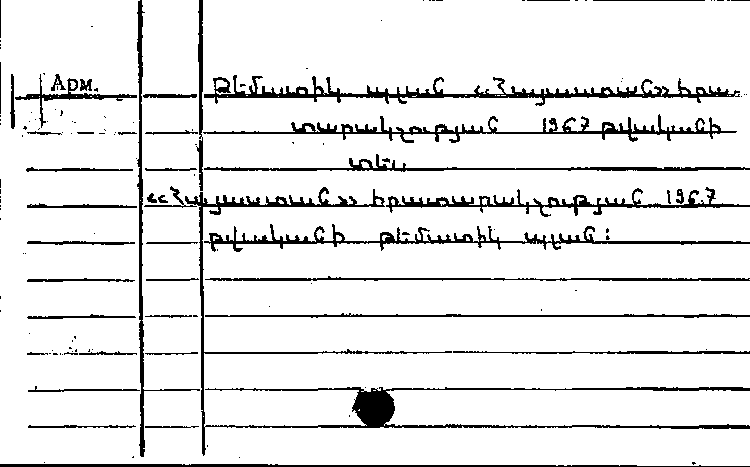 Adm.
Թեմատիկ պլան «Հայաստան» հրա-
տարակչության 1967 թվականի
տես
«Հայաստան» հրատարակչության 1967
թվականի թեմատիկ պլան: